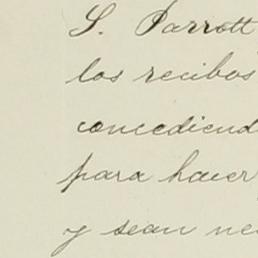 S. Parrott
los recibos
concediend
para hacer
y sean ne